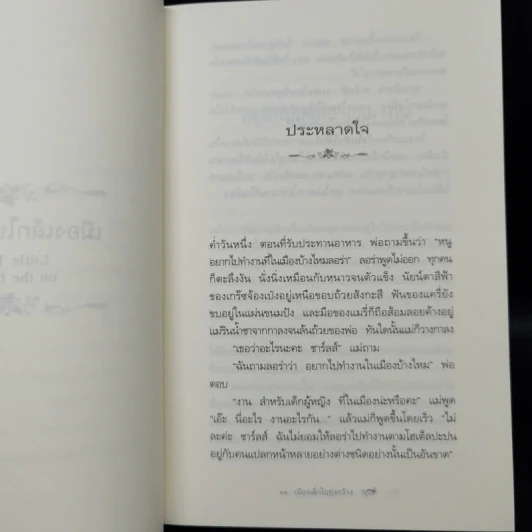 ประหลาดใจ
ค่ำวันหนึ่ง ตอนที่รับประทานอาหาร พ่อถามขึ้นว่า "หนู
อยากไปทำงานที่ในเมืองบ้างไหมลอร่า" ลอร่าพูดไม่ออก ทุกคน
ก็ตะลึงงัน นั่งนิ่งเหมือนกับหนาวจนตัวแข็ง นัยน์ตาสีฟ้า
ของเกร๊ซจ้องเป๋งอยู่เหนือขอบถ้วยสังกะสี ฟันของแครี่ยัง
ขบอยู่ในแผ่นขนมปัง และมือของแมรี่ก็ถือส้อมลอยค้างอยู่
แม่รินน้ำชาจากกาลงจนล้นถ้วยของพ่อ ทันใดนั้นแม่ก็วางกาลง
"เธอว่าอะไรนะคะ ชาร์ลส์" แม่ถาม
"ฉันถามลอร่าว่า อยากไปทำงานในเมืองบ้างไหม" พ่อ
ตอบ
"งาน สำหรับเด็กผู้หญิง ที่ในเมืองน่ะหรือคะ" แม่พูด
"เอ๊ะ นี่อะไร งานอะไรกัน..." แล้วแม่ก็พูดขึ้นโดยเร็ว "ไม่
ละค่ะ ชาร์ลส์ ฉันไม่ยอมให้ลอร่าไปทำงานตามโฮเต็ลปะปน
อยู่กับคนแปลกหน้าหลายอย่างต่างชนิดอย่างนั้นเป็นอันขาด"
๑๑ เมืองเล็กในทุ่งกว้าง